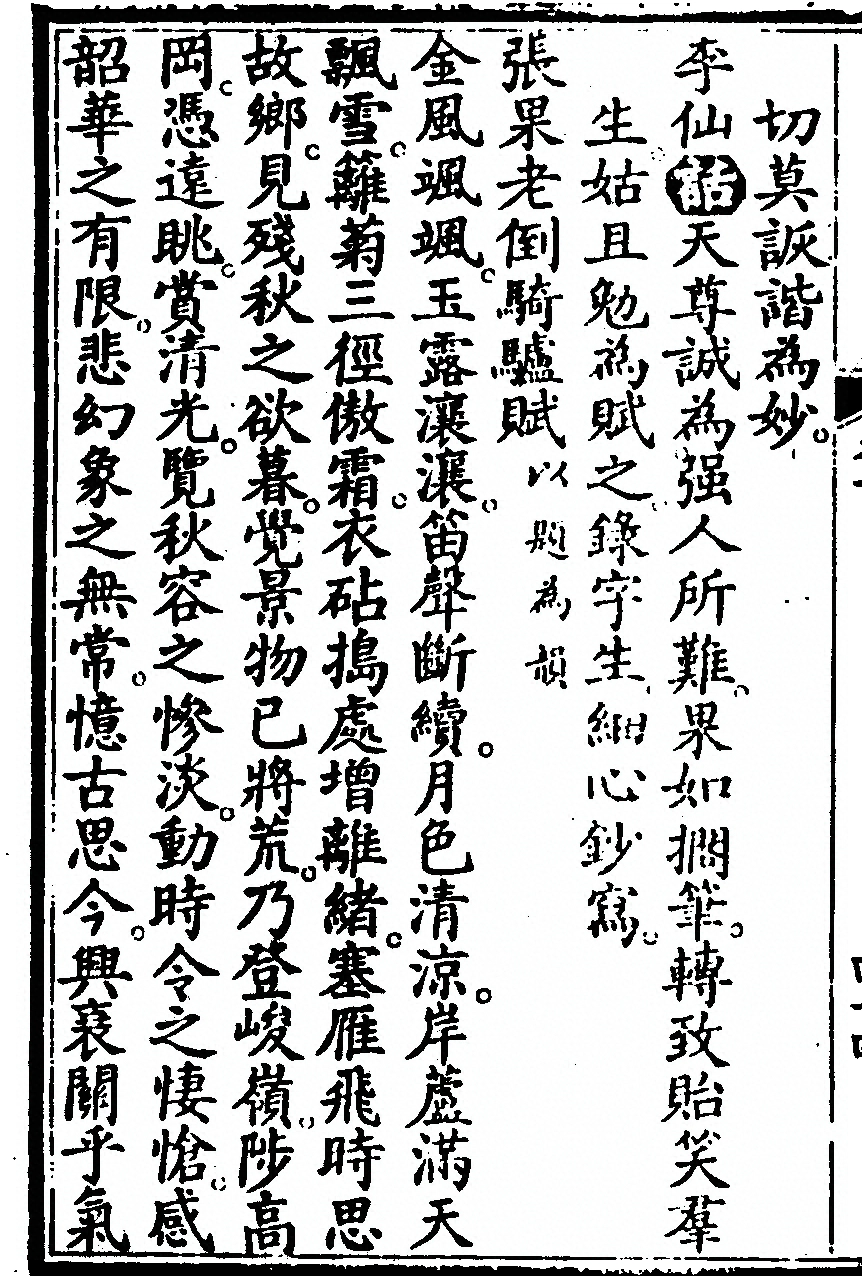 切莫詼諧為妙。
李仙詔天尊誠為强人所難。果如擱筆。轉致貽笑羣
生。姑且勉為賦之。錄字生。細心鈔寫。
張果老倒騎驢賦以題為韻
金風颯颯。玉露瀼瀼。笛聲斷續。月色清涼。岸蘆滿天
飄雪。籬菊三徑傲霜。衣砧搗處增離緒。塞雁飛時思
故鄉。見殘秋之欲暮。覺景物已將荒。乃登峻嶺。陟高
岡。憑遠眺。賞清光。覽秋容之慘淡。動時令之悽愴。感
韶華之有限。悲幻象之無常。憶古思今。興衰關乎氣